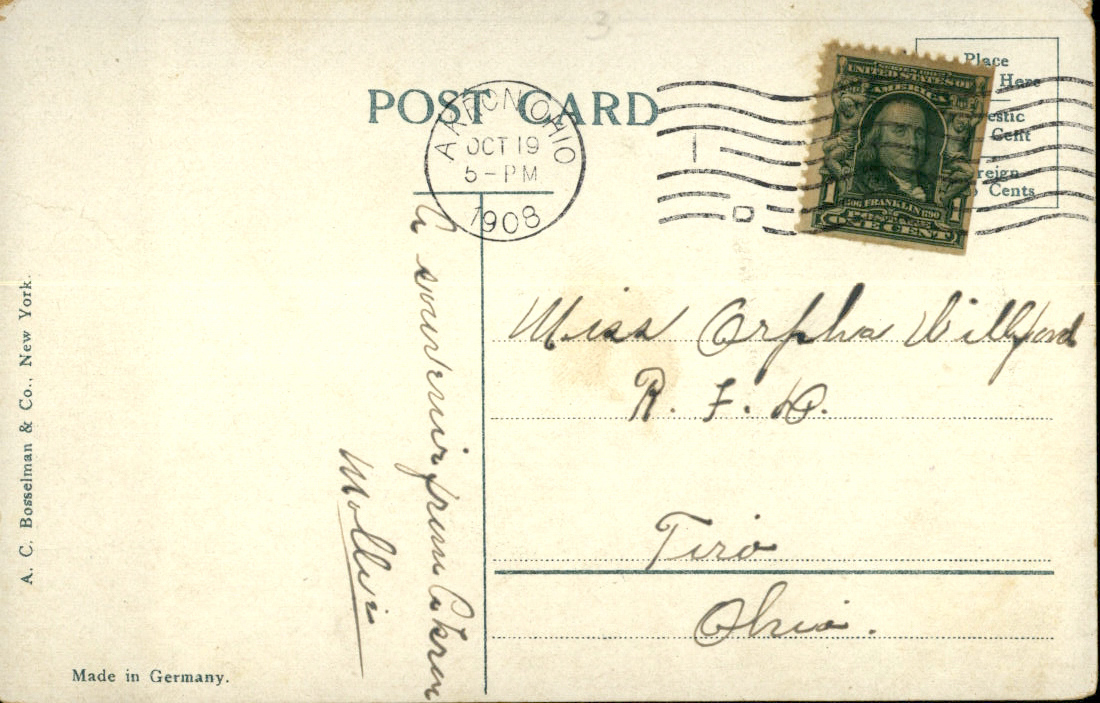 3
POST CARD
AKRON OHIO
OCT 19
5-PM
1908
D
Place
Here
estic
Cent
reign
Cents
SERIES 1902
UNITED STATES OF
AMERICA
1706 FRANKLIN 1790
1 POSTAGE 1
ONE CENT
A souvenir from Akron
Mollie
Miss Orpha Willford
R. F. D.
Tiro
Ohio.
A. C. Bosselman & Co., New York.
Made in Germany.